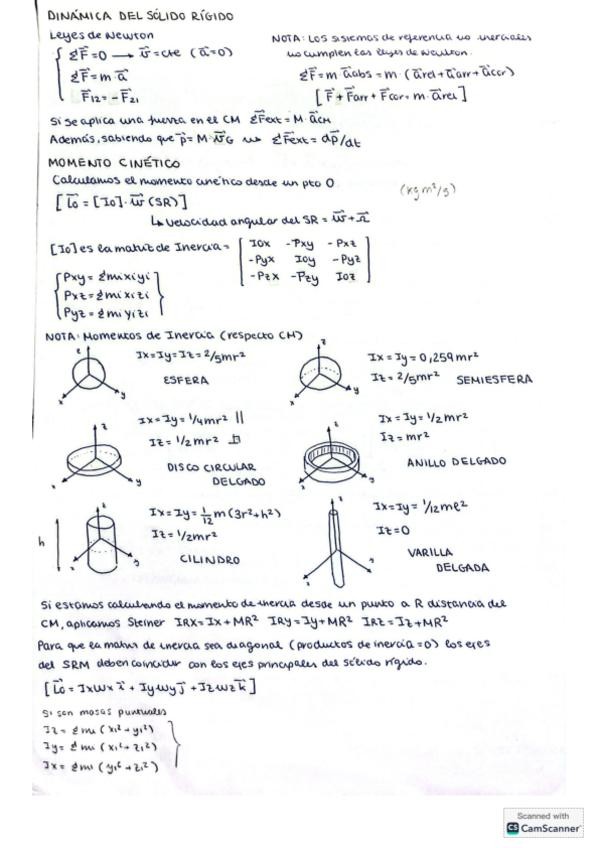 DINÁMICA DEL SÓLIDO RÍGIDO
Leyes de Newton
ΣF⃗=0 → v⃗=cte (a⃗=0)
ΣF⃗=m·a⃗
F⃗12=-F⃗21
NOTA: Los sistemas de referencia no inerciales
no cumplen las leyes de Newton.
ΣF⃗=m·a⃗abs=m·(a⃗rel+a⃗arr+a⃗cor)
[F⃗+F⃗arr+F⃗cor=m·a⃗rel]
Si se aplica una fuerza en el CM ΣF⃗ext=M·a⃗CM
Además, sabiendo que p⃗=M·v⃗G ⇝ ΣF⃗ext=dp⃗/dt
MOMENTO CINÉTICO
Calculamos el momento cinético desde un pto O.
(kg m²/s)
[L⃗o=[Io]·w⃗(SR)]
↳ Velocidad angular del SR=w⃗+Ω⃗
[Io] es la matriz de Inercia=
IOx -Pxy -Pxz
-Pyx IOy -Pyz
-Pzx -Pzy IOz
Pxy=Σmixiyi
Pxz=Σmixizi
Pyz=Σmiyizi
NOTA: Momentos de Inercia (respecto CM)
z
x
y
Ix=Iy=Iz=2/5mr²
ESFERA
z
x
y
Ix=Iy=0,259mr²
Iz=2/5mr² SEMIESFERA
z
x
y
Ix=Iy=1/4mr² ||
Iz=1/2mr²
DISCO CIRCULAR
DELGADO
z
x
y
Ix=Iy=1/2mr²
Iz=mr²
ANILLO DELGADO
h
z
x
y
Ix=Iy=1/12 m(3r²+h²)
Iz=1/2mr²
CILINDRO
z
x
y
Ix=Iy=1/12mℓ²
Iz=0
VARILLA
DELGADA
Si estamos calculando el momento de inercia desde un punto a R distancia del
CM, aplicamos Steiner IRX=Ix+MR² IRY=Iy+MR² IRZ=Iz+MR²
Para que la matriz de inercia sea diagonal (productos de inercia=0) los ejes
del SRM deben coincidir con los ejes principales del sólido rígido.
[L⃗o=Ixwx i⃗+Iywy j⃗+Izwz k⃗]
Si son masas puntuales
Iz=Σmi(xi²+yi²)
Iy=Σmi(xi²+zi²)
Ix=Σmi(yi²+zi²)
Scanned with
CS CamScanner